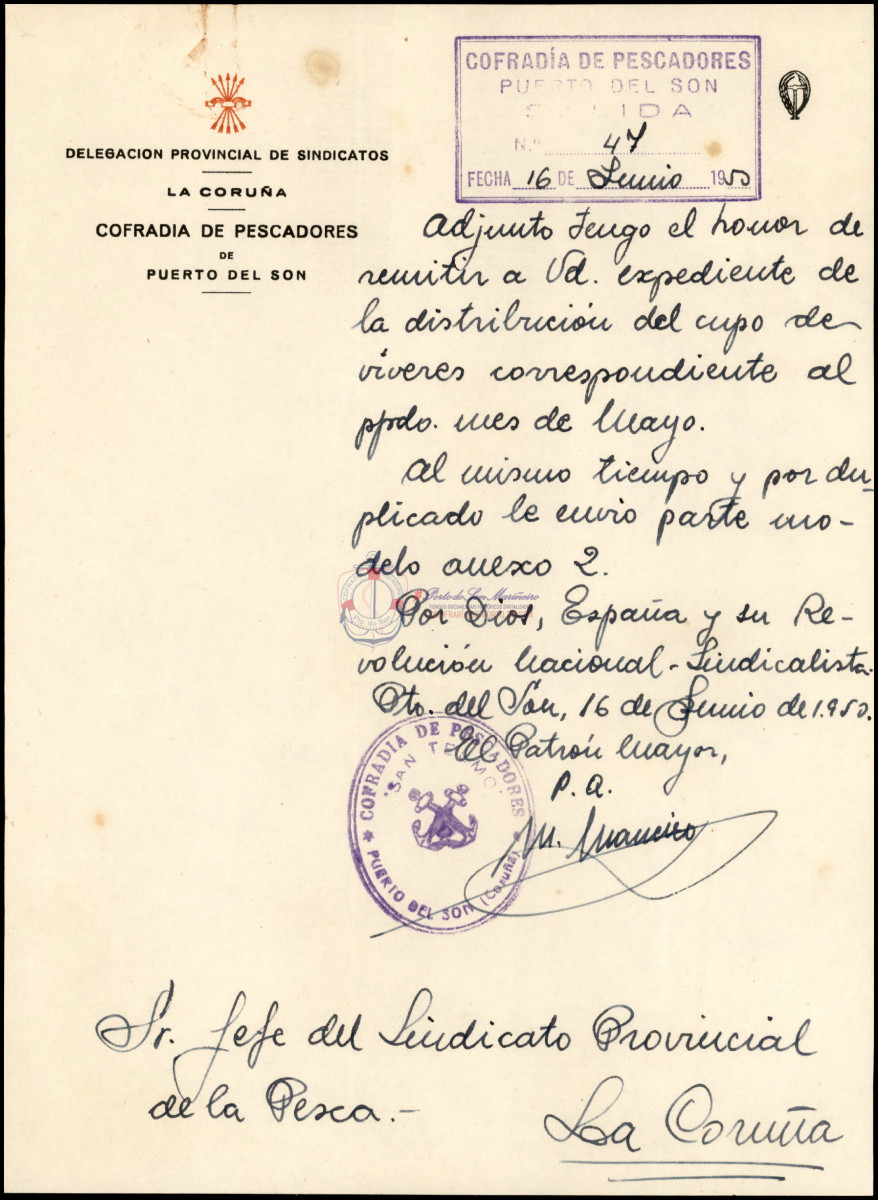 DELEGACION PROVINCIAL DE SINDICATOS
LA CORUÑA
COFRADIA DE PESCADORES
DE
PUERTO DEL SON
COFRADÍA DE PESCADORES
PUERTO DEL SON
SALIDA
N.º 47
FECHA 16 DE Junio 1950
Adjunto tengo el honor de
remitir a Vd. expediente de
la distribución del cupo de
víveres correspondiente al
ppdo. mes de Mayo.
Al mismo tiempo y por du-
plicado le envio parte mo-
delo anexo 2.
Porto do Son Mariñeiro
Por Dios, España y su Re-
volución Nacional-Sindicalista.
Pto. del Son, 16 de Junio de 1.950.
El Patrón Mayor,
P.A.
COFRADIA DE PESCADORES
"SAN TELMO"
* PUERTO DEL SON (Coruña) *
Sr. Jefe del Sindicato Provincial
de la Pesca.-
La Coruña